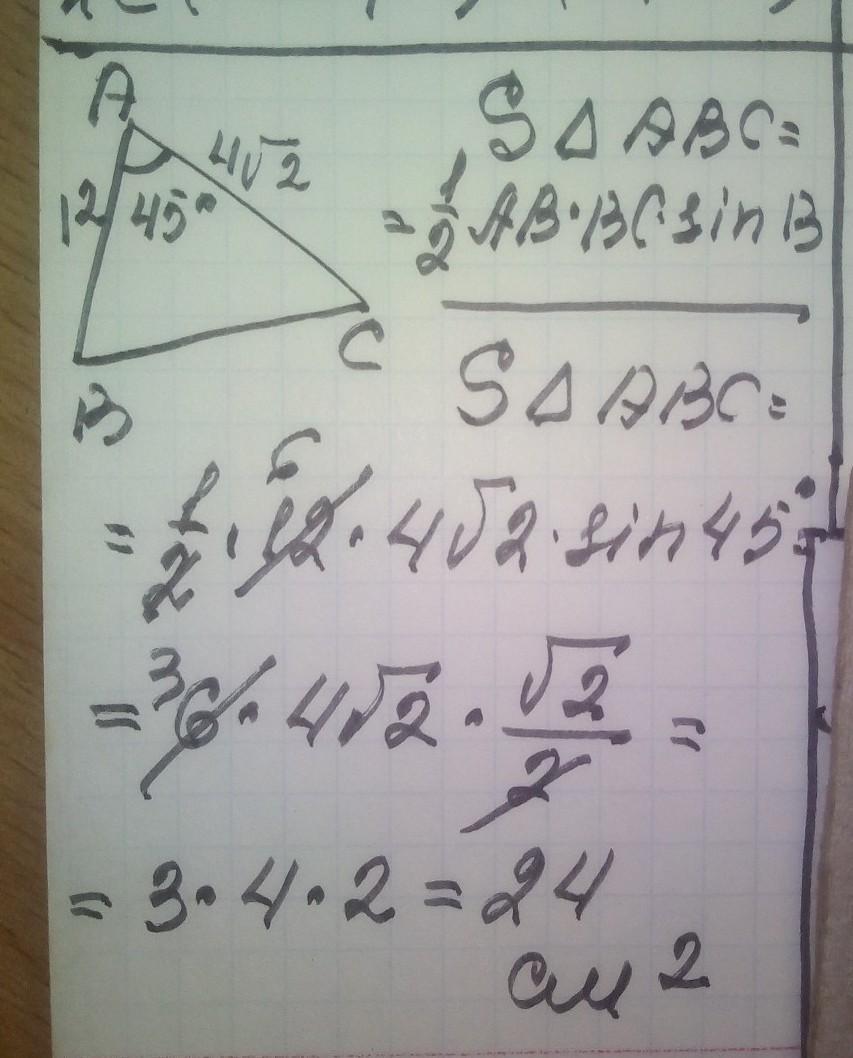 A
4√2
12
45°
C
B
S△ABC=
=1/2 AB·BC·sin B
S△ABC=
6
= 1/2 · 12 · 4√2 · sin 45° =
= 3 6 · 4√2 · √2/2 =
= 3 · 4 · 2 = 24
см 2